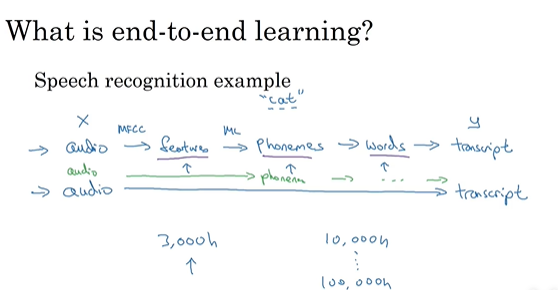 What is end-to-end learning?
Speech recognition example
"cat"
X MFCC ML y
→ audio → features → Phonemes → words → transcript
audio → phonem → ... →
→ audio → transcript
3,000h 10,000h
↑ ⋮
100,000h